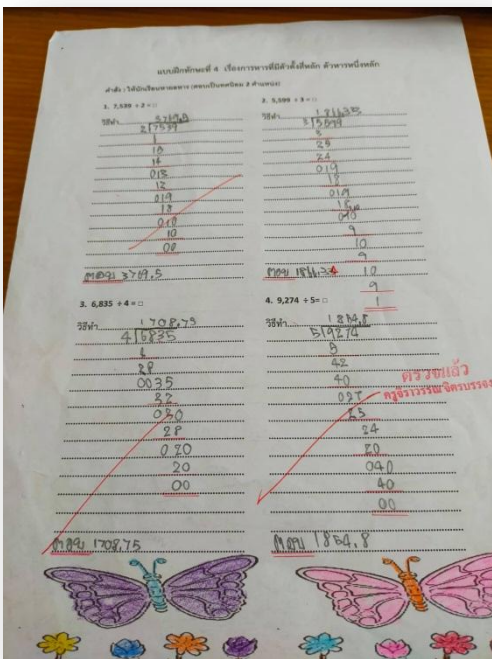 แบบฝึกทักษะที่ 4 เรื่องการหารที่มีตัวตั้งสี่หลัก ตัวหารหนึ่งหลัก
คำสั่ง : ให้นักเรียนหาผลหาร (ตอบเป็นทศนิยม 2 ตำแหน่ง)
1. 7,539 ÷ 2 = □
วิธีทำ 3769.5
2 7539
15
14
013
12
019
18
010
10
00
ตอบ 3769.5
2. 5,599 ÷ 3 = □
วิธีทำ
3 5599
3
25
24
019
18
019
18
9
10
9
10
9
1
ตอบ
3. 6,835 ÷ 4 = □
วิธีทำ 1708.75
4 6835
4
28
0035
32
030
28
020
20
00
ตอบ 1708.75
4. 9,274 ÷ 5= □
วิธีทำ 1854.8
5 9274
5
42
40
027
25
24
20
040
40
00
ตอบ 1854.8
ตรวจแล้ว